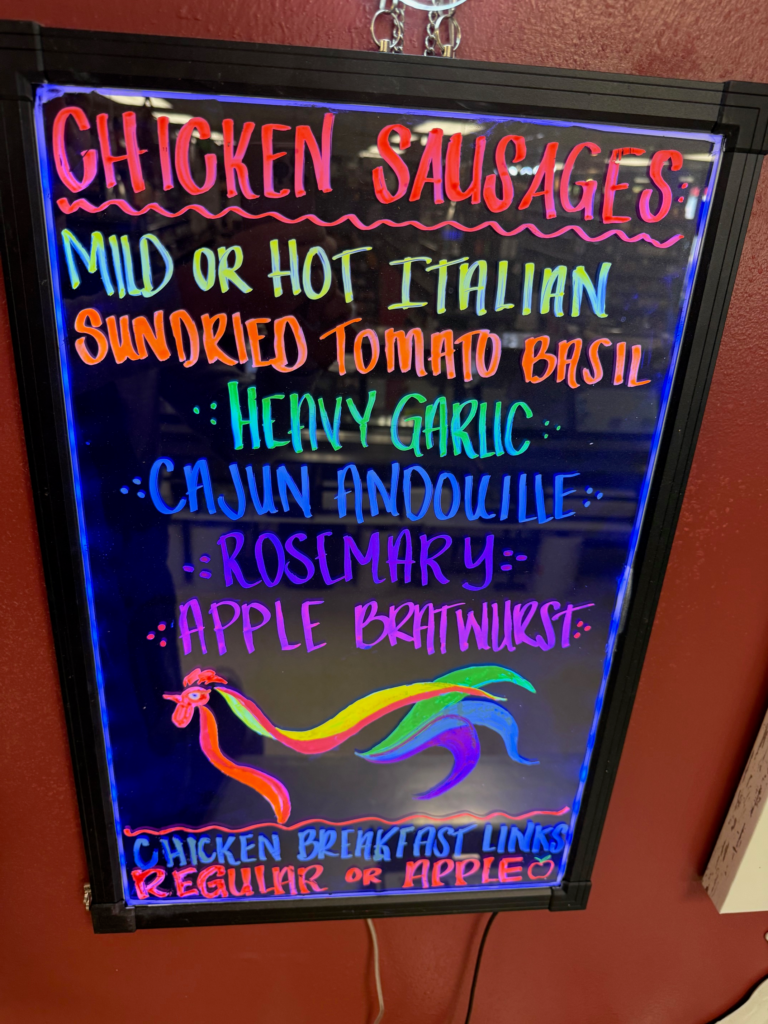 CHICKEN SAUSAGES:
MILD OR HOT ITALIAN
SUNDRIED TOMATO BASIL
HEAVY GARLIC
CAJUN ANDOUILLE
ROSEMARY
APPLE BRATWURST
CHICKEN BREAKFAST LINKS
REGULAR OR APPLE